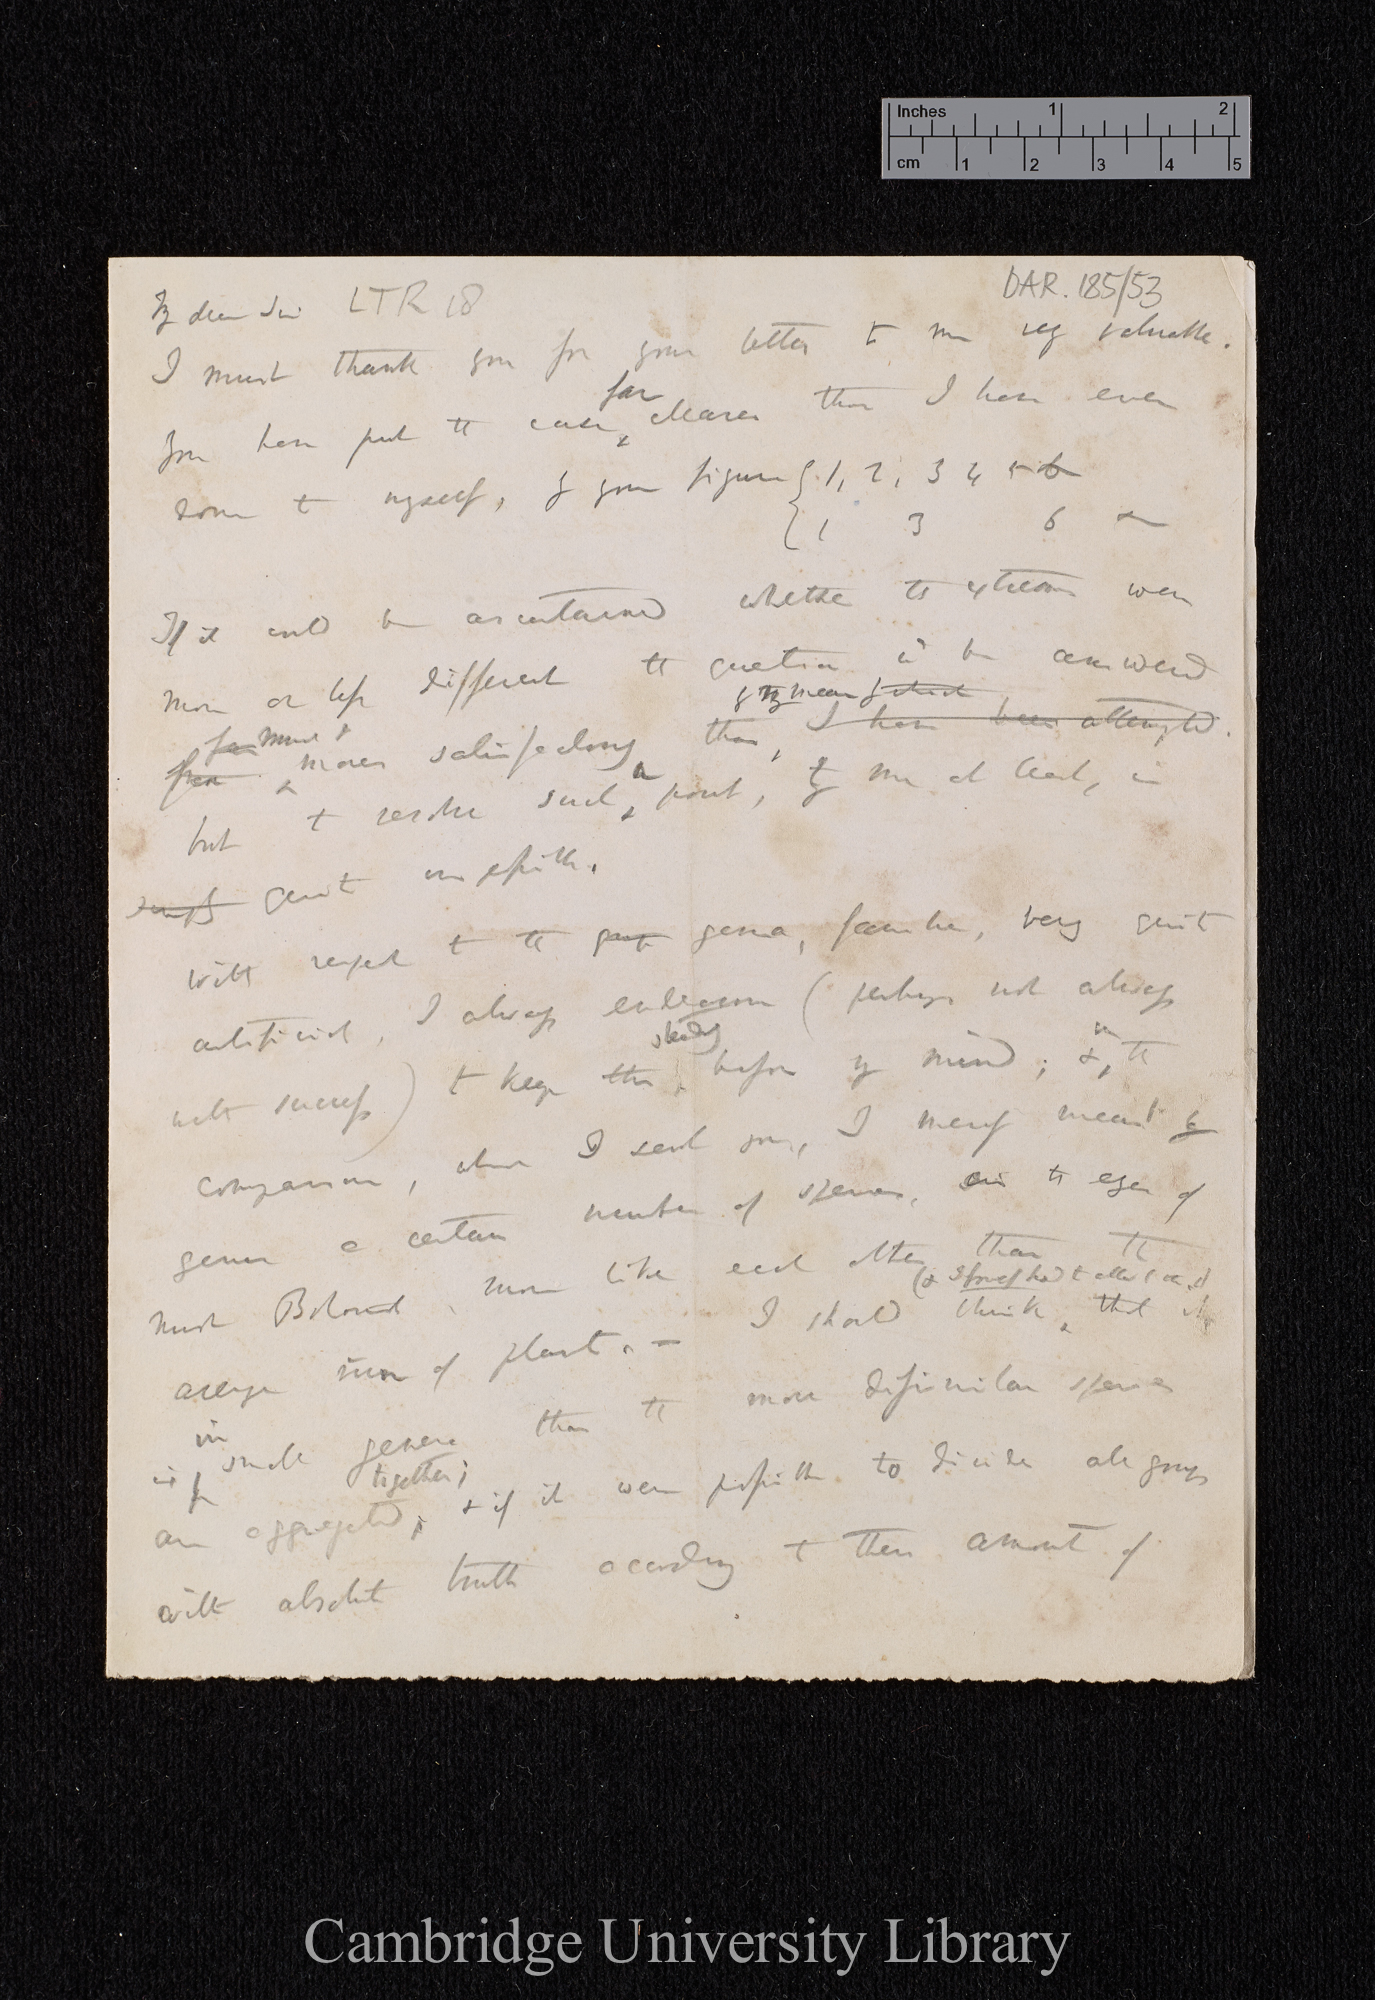 Inches 1 2
cm 1 2 3 4 5
DAR. 185/53
My dear Sir LTR 18
I must thank you for your letter to me very valuable.
You have put the case far clearer than I have ever
done to myself, by your figures { 1, 2, 3 4 5 6
{ 1 3 6
If it could be ascertained whether the extremes were
more or less different the question wd be answered
far much more satisfactorily than, by my means of which I have been attempted.
but to resolve such a point, by me at least, is
simply quite impossible.
With respect to the genera, families, being quite
artificial, I always endeavour (perhaps not always
with success) to keep this steadily before my mind; & in the
comparison, which I sent you, I merely meant by
genera a certain number of species, in the eyes of
most Botanists, more like each other than the
average run of plants. — I should think, (& I had) that it
in small genera than the more dissimilar species
are aggregated together; & if it were possible to divide all groups
with absolute truth according to their amount of
Cambridge University Library